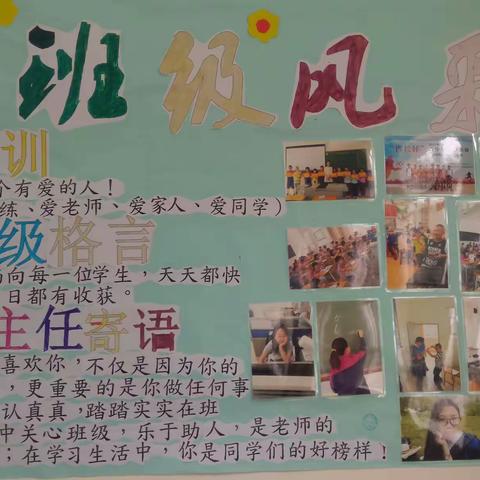 班级风采
训
个有爱的人！
练、爱老师、爱家人、爱同学）
级格言
向每一位学生，天天都快
日都有收获。
主任寄语
喜欢你，不仅是因为你的
，更重要的是你做任何事
认真真，踏踏实实在班
中关心班级，乐于助人，是老师的
；在学习生活中，你是同学们的好榜样！